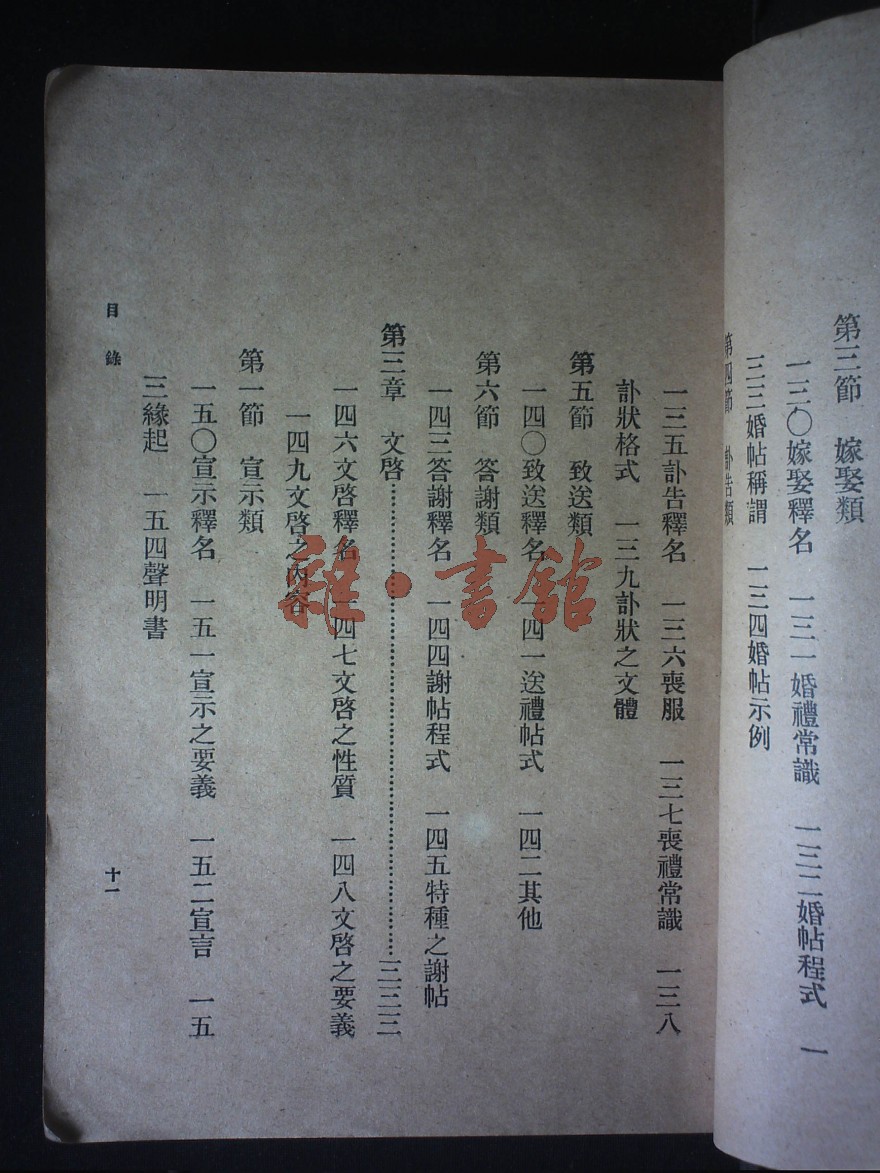 第三節　嫁娶類
一三〇嫁娶釋名　一三一婚禮常識　一三二婚帖程式　一
三三婚帖稱謂　一三四婚帖示例
第四節　訃告類
一三五訃告釋名　一三六喪服　一三七喪禮常識　一三八
訃狀格式　一三九訃狀之文體
第五節　致送類
一四〇致送釋名　一四一送禮帖式　一四二其他
第六節　答謝類
一四三答謝釋名　一四四謝帖程式　一四五特種之謝帖
第三章　文啓……三三三
一四六文啓釋名　一四七文啓之性質　一四八文啓之要義
一四九文啓之內容
第一節　宣示類
一五〇宣示釋名　一五一宣示之要義　一五二宣言　一五
三緣起　一五四聲明書
目錄
十一
雜·書館